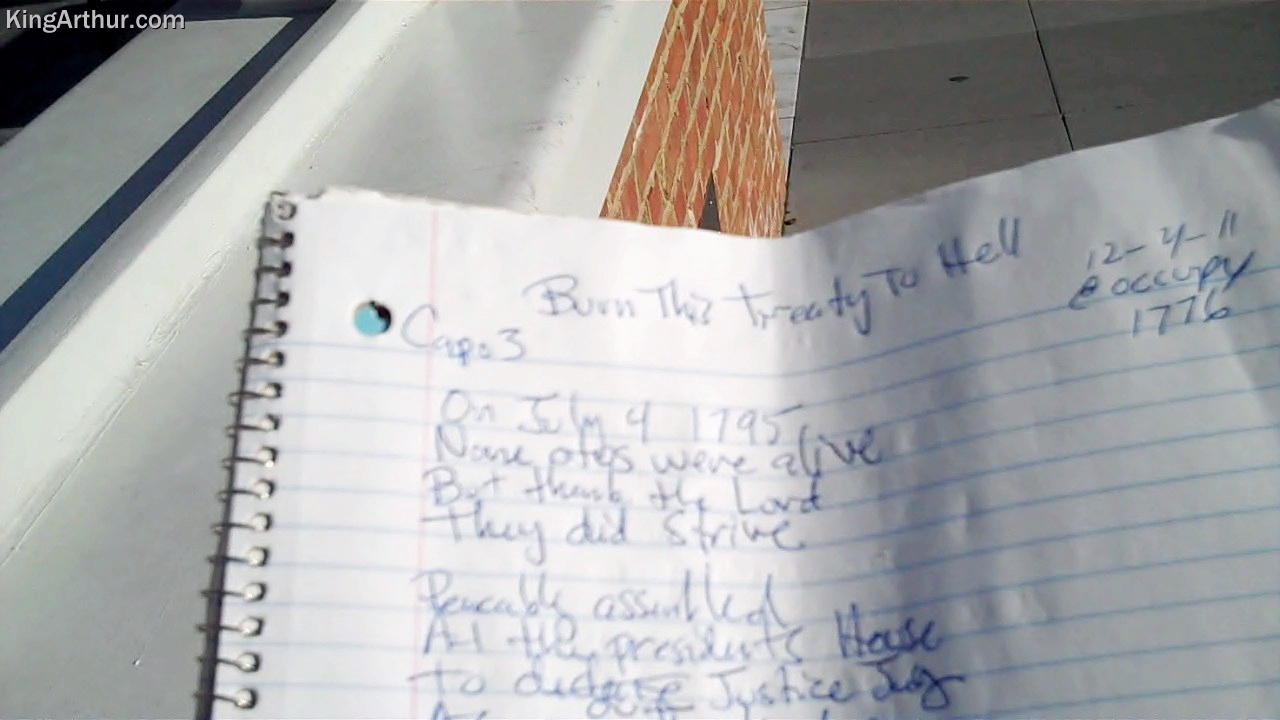 KingArthur.com
Burn This Treaty To Hell
12-4-11
@ occupy
1776
Capo 3
On July 4 1795
None of us were alive
But thank the Lord
They did strive
Peacably assembled
At the presidents House
To Justice Jay